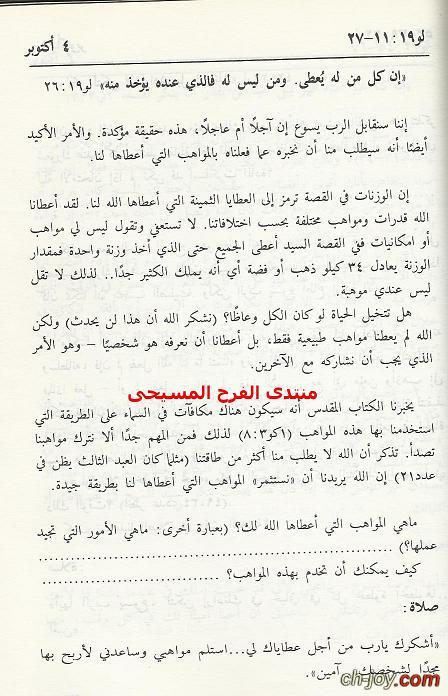 لو١٩: ١١–٢٧
٤ أكتوبر
«إن كل من له يُعطى. ومن ليس له فالذي عنده يؤخذ منه» لو١٩: ٢٦
إننا سنقابل الرب يسوع إن آجلاً أم عاجلاً، هذه حقيقة مؤكدة. والأمر الأكيد
أيضًا أنه سيطلب منا أن نخبره عما فعلناه بالمواهب التي أعطاها لنا.
إن الوزنات في القصة ترمز إلى العطايا الثمينة التي أعطاها الله لنا. لقد أعطانا
الله قدرات ومواهب مختلفة بحسب اختلافاتنا. لا تستعفي وتقول ليس لي مواهب
أو امكانيات ففي القصة السيد أعطى الجميع حتى الذي أخذ وزنة واحدة فمقدار
الوزنة يعادل ٣٤ كيلو ذهب أو فضة أي أنه يملك الكثير جدًا.. لذلك لا تقل
ليس عندي موهبة.
هل تتخيل الحياة لو كان الكل وعاظًا؟ (نشكر الله أن هذا لن يحدث) ولكن
الله لم يعطنا مواهب طبيعية فقط، بل أعطانا أن نعرفه هو شخصيًا – وهو الأمر
الذي يجب أن نشاركه مع الآخرين.
منتدى الفرح المسيحى
يخبرنا الكتاب المقدس أنه سيكون هناك مكافآت في السماء على الطريقة التي
استخدمنا بها هذه المواهب (١كو٣: ٨) لذلك فمن المهم جدًا ألا نترك مواهبنا
تصدأ. تذكر أن الله لا يطلب منا أكثر من طاقتنا (مثلما كان العبد الثالث يظن في
عدد٢١) إن الله يريدنا أن «نستثمر» المواهب التي أعطاها لنا بطريقة جيدة.
ماهي المواهب التي أعطاها الله لك؟ (بعبارة أخرى: ماهي الأمور التي تجيد
عملها؟) ......................................................
كيف يمكنك أن تخدم بهذه المواهب؟ ..............................
صلاة:
«أشكرك يارب من أجل عطاياك لي...استلم مواهبي وساعدني لأربح بها
مجدًا لشخصك.. آمين».
ch-joy.com